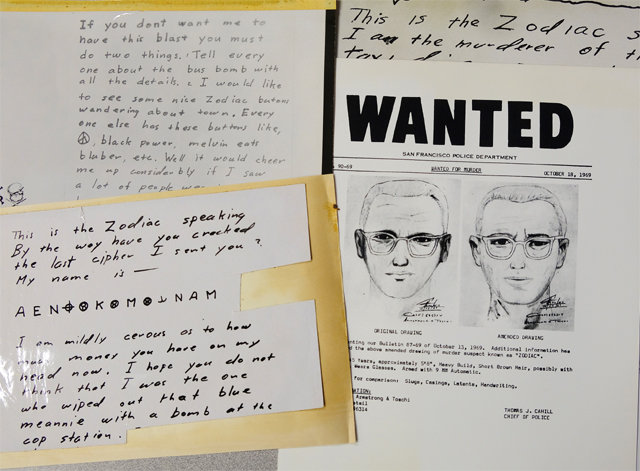 If you dont want me to
have this blast you must
do two things. Tell every
one about the bus bomb with
all the details. I would like
to see some nice Zodiac butons
wandering about town. Every
one else has these buttons like,
☮, black power, melvin eats
blaber, etc. Well it would cheer
me up considerbly if I saw
a lot of people
This is the Zodiac speaking
By the way have you cracked
the last cipher I sent you?
My name is —
A E N ⌖ ⊗ K ⊗ M ⊗ ⅃ N A M
I am mildly cerous as to how
much money you have on my
head now. I hope you do not
think that I was the one
who wiped out that blue
meannie with a bomb at the
cop station.
This is the Zodiac s
I am the murderer of th
WANTED
SAN FRANCISCO POLICE DEPARTMENT
90-69 WANTED FOR MURDER OCTOBER 18, 1969
ORIGINAL DRAWING AMENDED DRAWING
nting our Bulletin 87-69 of October 13, 1969. Additional information has
ed the above amended drawing of murder suspect known as "ZODIAC".
45 Years, approximately 5'8", Heavy Build, Short Brown Hair, possibly with
Wears Glasses. Armed with 9 MM Automatic.
for comparison: Slugs, Casings, Latents, Handwriting.
ATION:
Armstrong & Toschi
etail
96314
THOMAS J. CAHILL
CHIEF OF POLICE